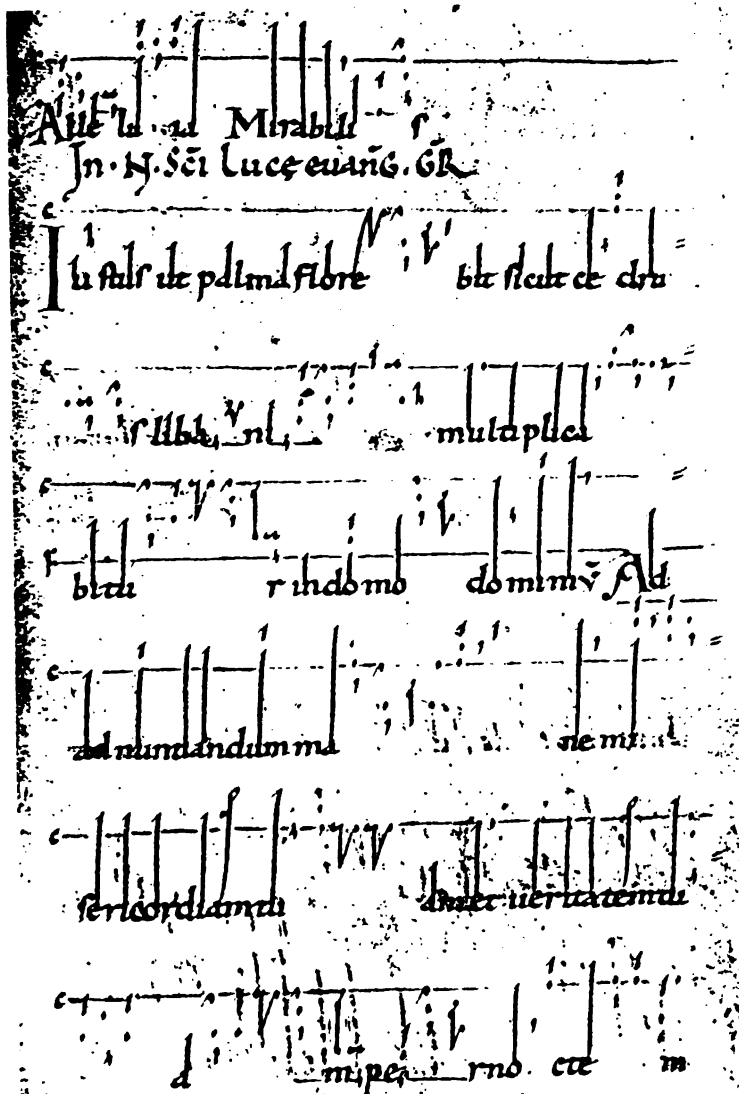 Alle lu ia Mirabili s
In · N · Sc̄i Lucę evanḡ. GR̄
Iustus ut palma flore bit sicut ce dru
s liba ni multiplica
bitu r in domo domini v̄ Ad
ad nuntiandum ma ne mi
sericordiam tu
am et veritatem tu
a m per no cte m